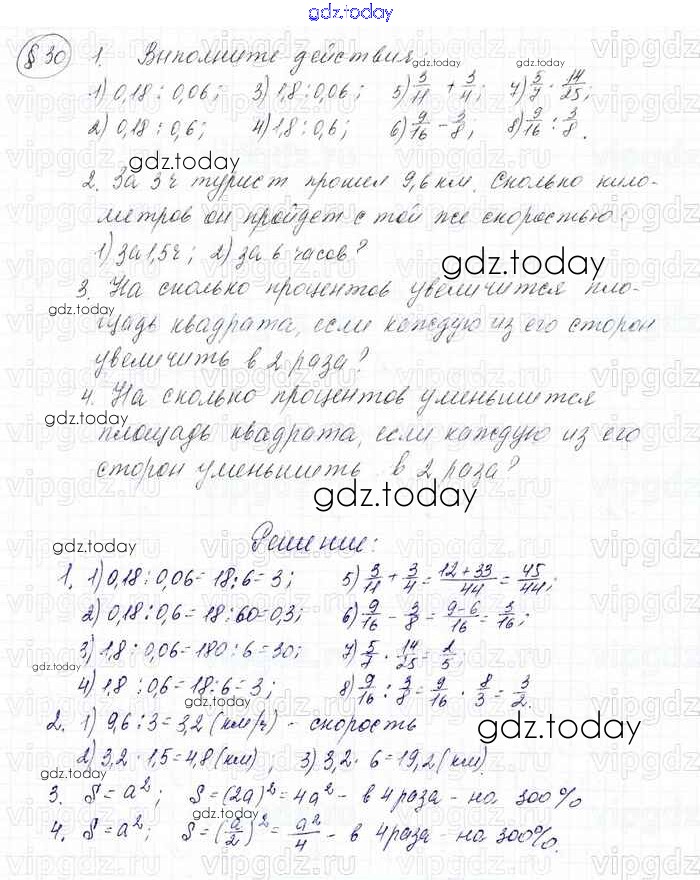 gdz.today
§ 30 1. Выполните действия:
1) 0,18 : 0,06; 3) 1,8 : 0,06; 5) 3/11 + 3/4; 7) 5/7 · 14/25;
2) 0,18 : 0,6; 4) 1,8 : 0,6; 6) 9/16 - 3/8; 8) 9/16 : 3/8.
gdz.today
2. За 3 ч турист прошел 9,6 км. Сколько кило-
метров он пройдет с той же скоростью:
1) за 1,5 ч; 2) за 6 часов?
gdz.today
3. На сколько процентов увеличится пло-
щадь квадрата, если каждую из его сторон
увеличить в 2 раза?
4. На сколько процентов уменьшится
площадь квадрата, если каждую из его
сторон уменьшить в 2 раза?
gdz.today
Решение:
1. 1) 0,18 : 0,06 = 18 : 6 = 3; 5) 3/11 + 3/4 = (12+33)/44 = 45/44;
2) 0,18 : 0,6 = 18 : 60 = 0,3; 6) 9/16 - 3/8 = (9-6)/16 = 3/16;
3) 1,8 : 0,06 = 180 : 6 = 30; 7) 5/7 · 14/25 = 2/5;
4) 1,8 : 0,6 = 18 : 6 = 3; 8) 9/16 : 3/8 = 9/16 · 8/3 = 3/2.
2. 1) 9,6 : 3 = 3,2 (км/ч) - скорость
2) 3,2 · 1,5 = 4,8 (км); 3) 3,2 · 6 = 19,2 (км).
3. S = a²; S = (2a)² = 4a² - в 4 раза - на 300%
4. S = a²; S = (a/2)² = a²/4 - в 4 раза - на 300%.